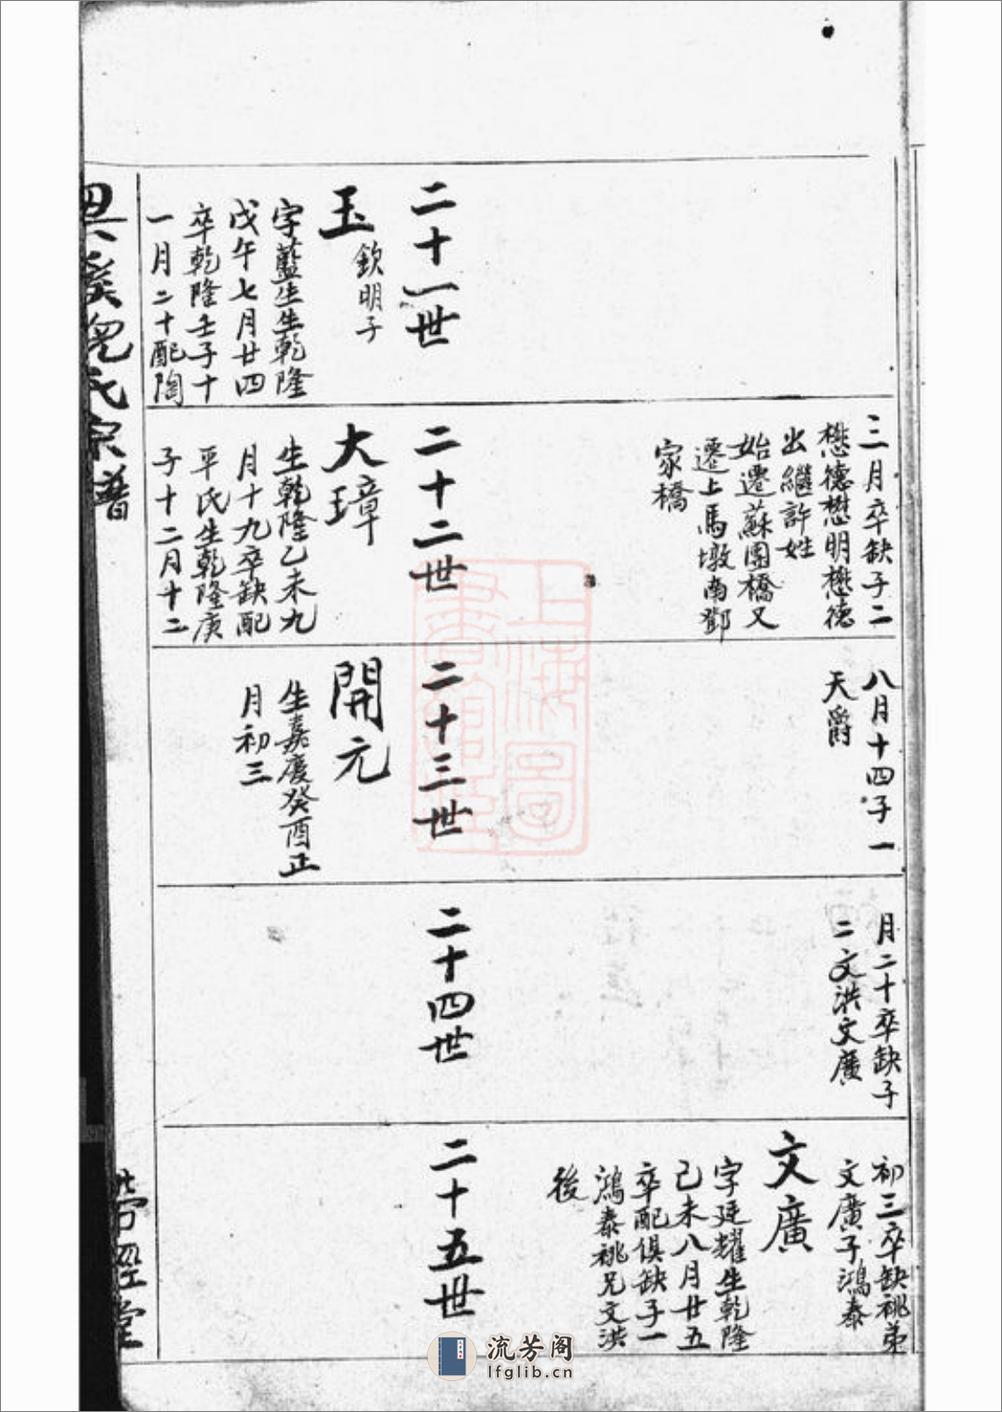 三月卒缺子二
懋德懋明懋德
出繼許姓
始遷蘇團橋又
遷上馬墩南鄧
家橋
二十一世
玉
欽明子
字藍生生乾隆
戊午七月廿四
卒乾隆壬子十
一月二十配陶
八月十四子一
天爵
二十二世
大璋
生乾隆乙未九
月十九卒缺配
平氏生乾隆庚
子十二月十二
月二十卒缺子
二文洪文廣
二十三世
開元
生嘉慶癸酉正
月初三
初三卒缺祧弟
文廣子鴻泰
二十四世
文廣
字廷耀生乾隆
己未八月廿五
卒配俱缺子一
鴻泰祧兄文洪
後
二十五世
氏宗譜
經堂
上海圖
書館藏
流芳阁
lfglib.cn